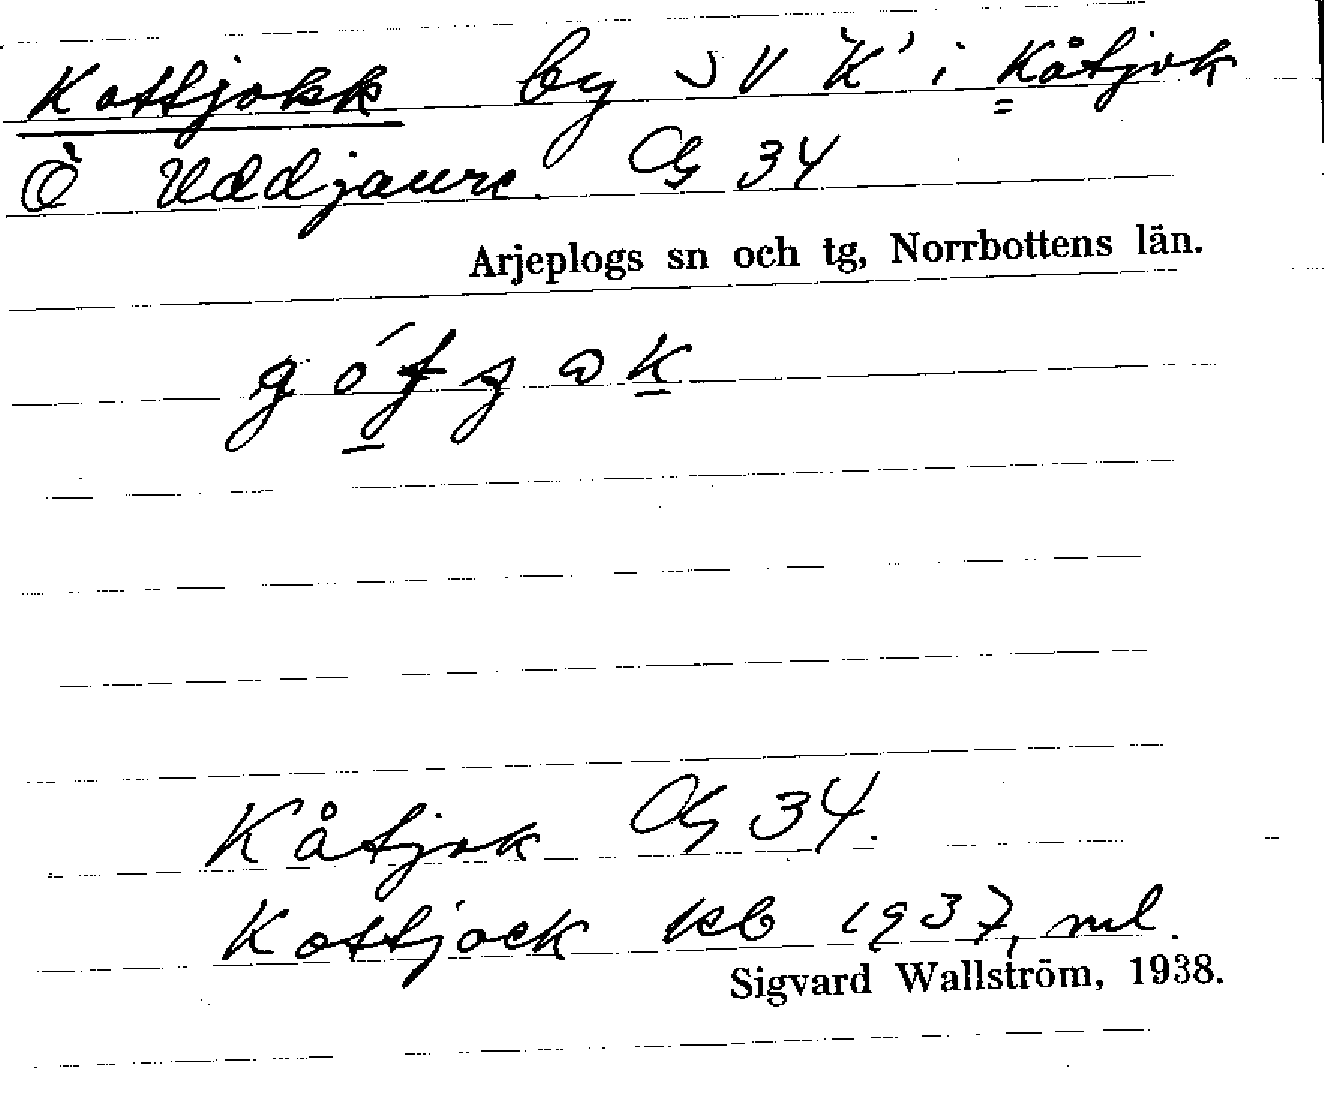 Kottjokk by SV 'K' i Kåtjok
Ö Uddjaure. OG 34
Arjeplogs sn och tg, Norrbottens län.
Kåtjok OG 34.
Kottjock kb 1937, ml.
Sigvard Wallström, 1938.